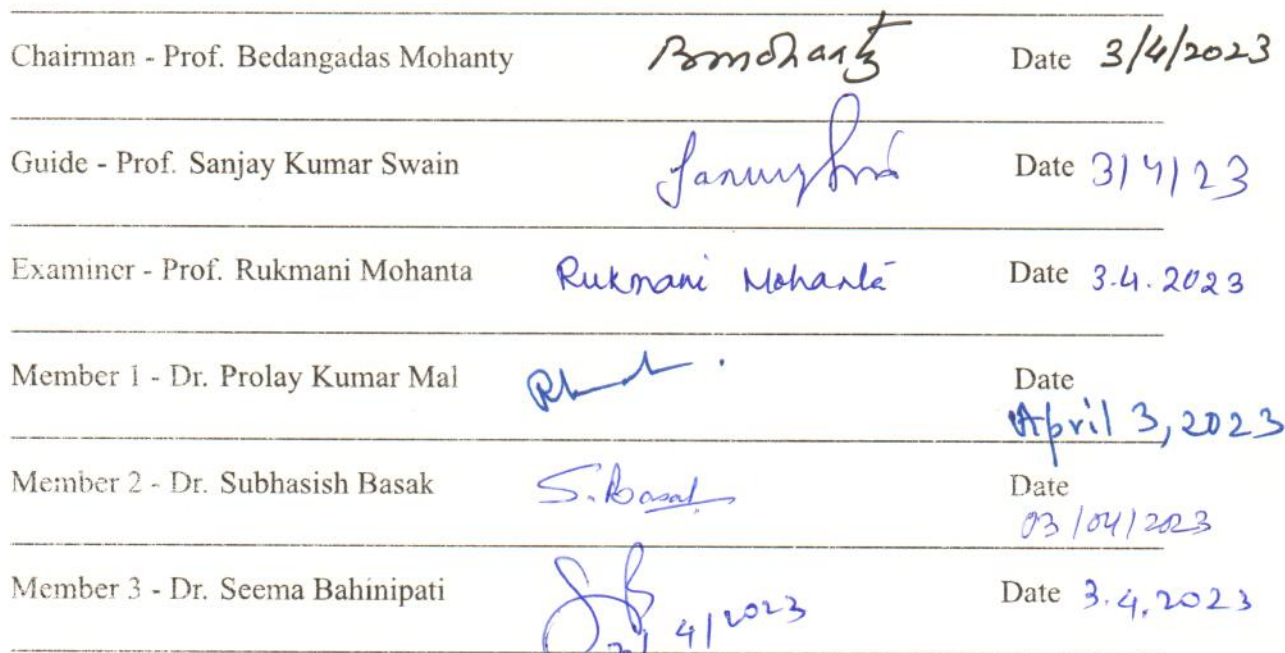 Chairman - Prof. Bedangadas Mohanty Bmohanty Date 3/4/2023
Guide - Prof. Sanjay Kumar Swain Date 3/4/23
Examiner - Prof. Rukmani Mohanta Rukmani Mohanta Date 3.4.2023
Member 1 - Dr. Prolay Kumar Mal Date
April 3, 2023
Member 2 - Dr. Subhasish Basak S. Basak Date
03/04/2023
Member 3 - Dr. Seema Bahinipati Date 3.4.2023
4/2023